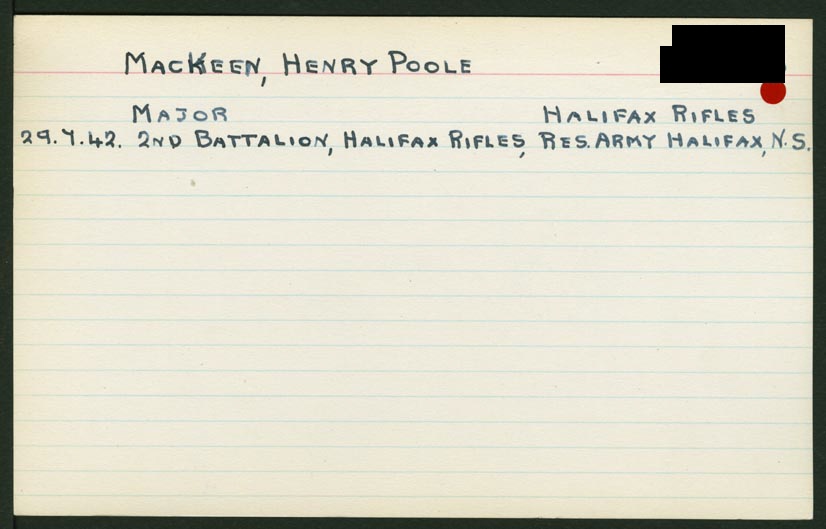 MacKeen, Henry Poole
Major Halifax Rifles
29.7.42. 2nd Battalion, Halifax Rifles, Res. Army Halifax, N.S.